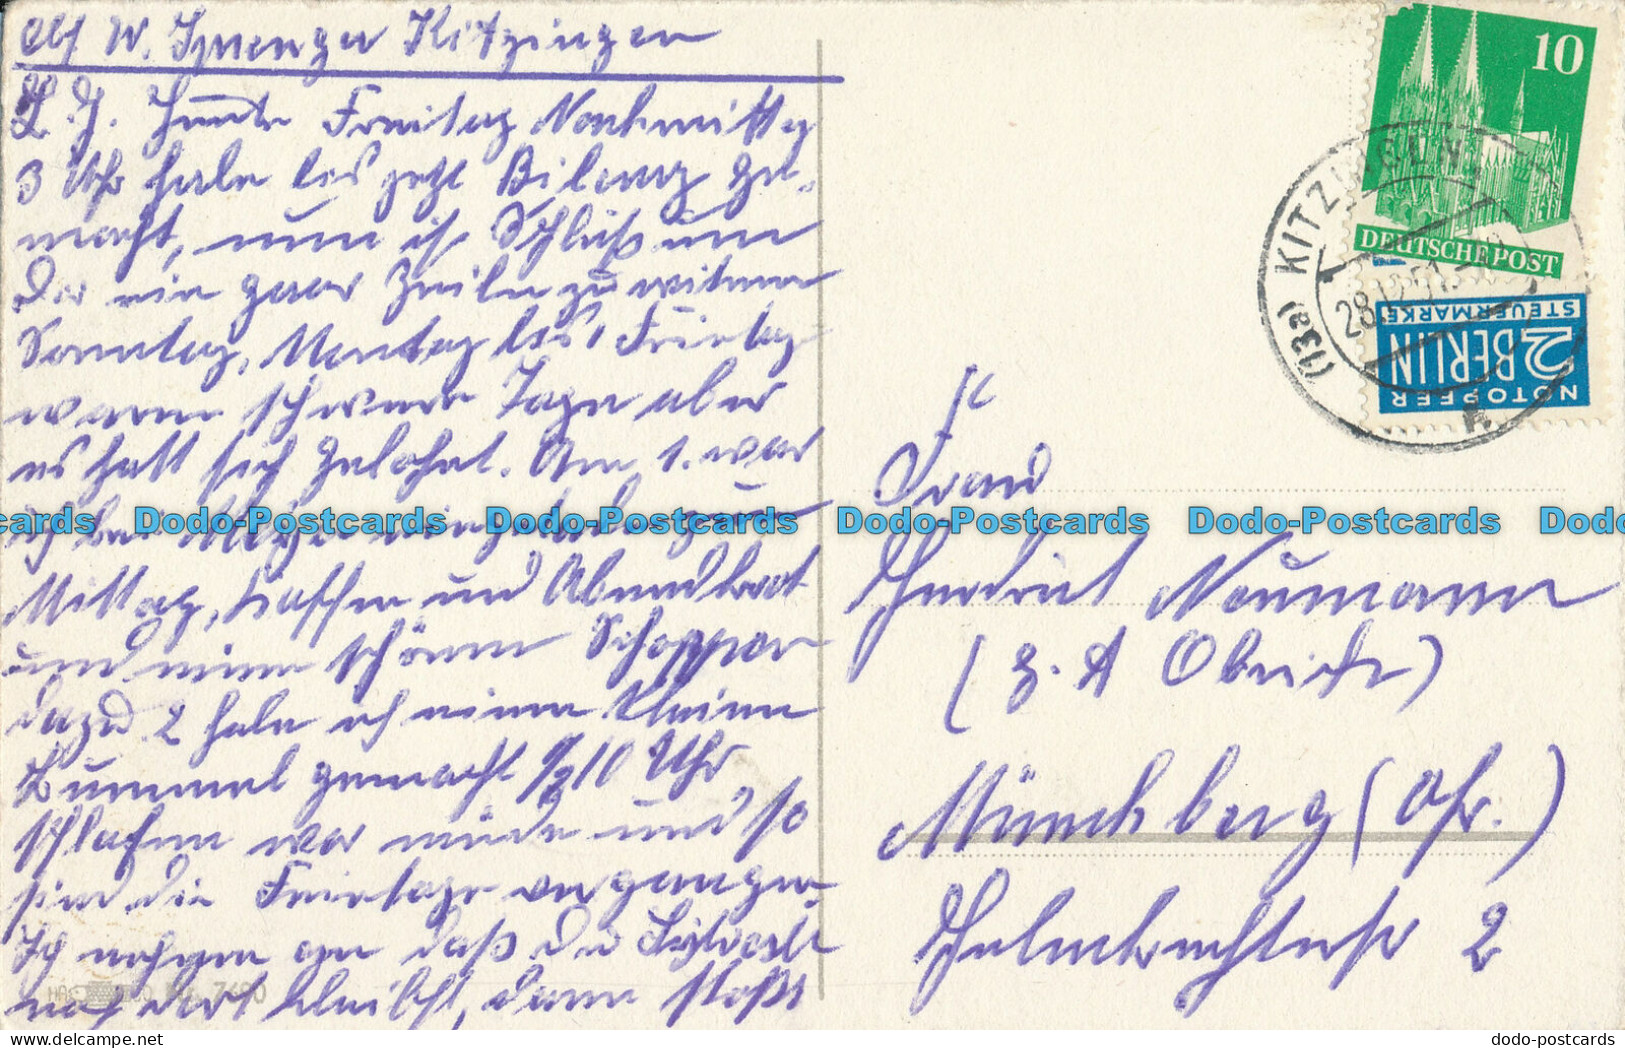 Abs W. Sprenger Kitzingen
L. G. Heute Freitag Nachmittag
3 Uhr habe bis jetzt Bilanz ge-
macht, nun ist Schluß um
Dir ein paar Zeilen zu widmen
Sonntag, Montag bis Freitag
waren schwere Tage aber
es hatt sich gelohnt. Am 1. war
ich bei eingeladen zum
Mittag, Kaffee und Abendbrot
und einen schönen Schoppen
dazu 2 habe ich einen kleinen
Bummel gemacht 1/2 10 Uhr
schlafen war müde und so
sind die Feiertage vergangen
Ich nehme an daß Du Silvester
noch dort bleibst, dann stoßt
10
DEUTSCHE POST
NOTOPFER
2 BERLIN
STEUERMARKE
(13a) KITZINGEN
28.12.51
Neumann
Münchberg (Ofr.)
2
HAGO Nr. 7400
Dodo-Postcards Dodo-Postcards Dodo-Postcards Dodo-Postcards
dodo-postcards